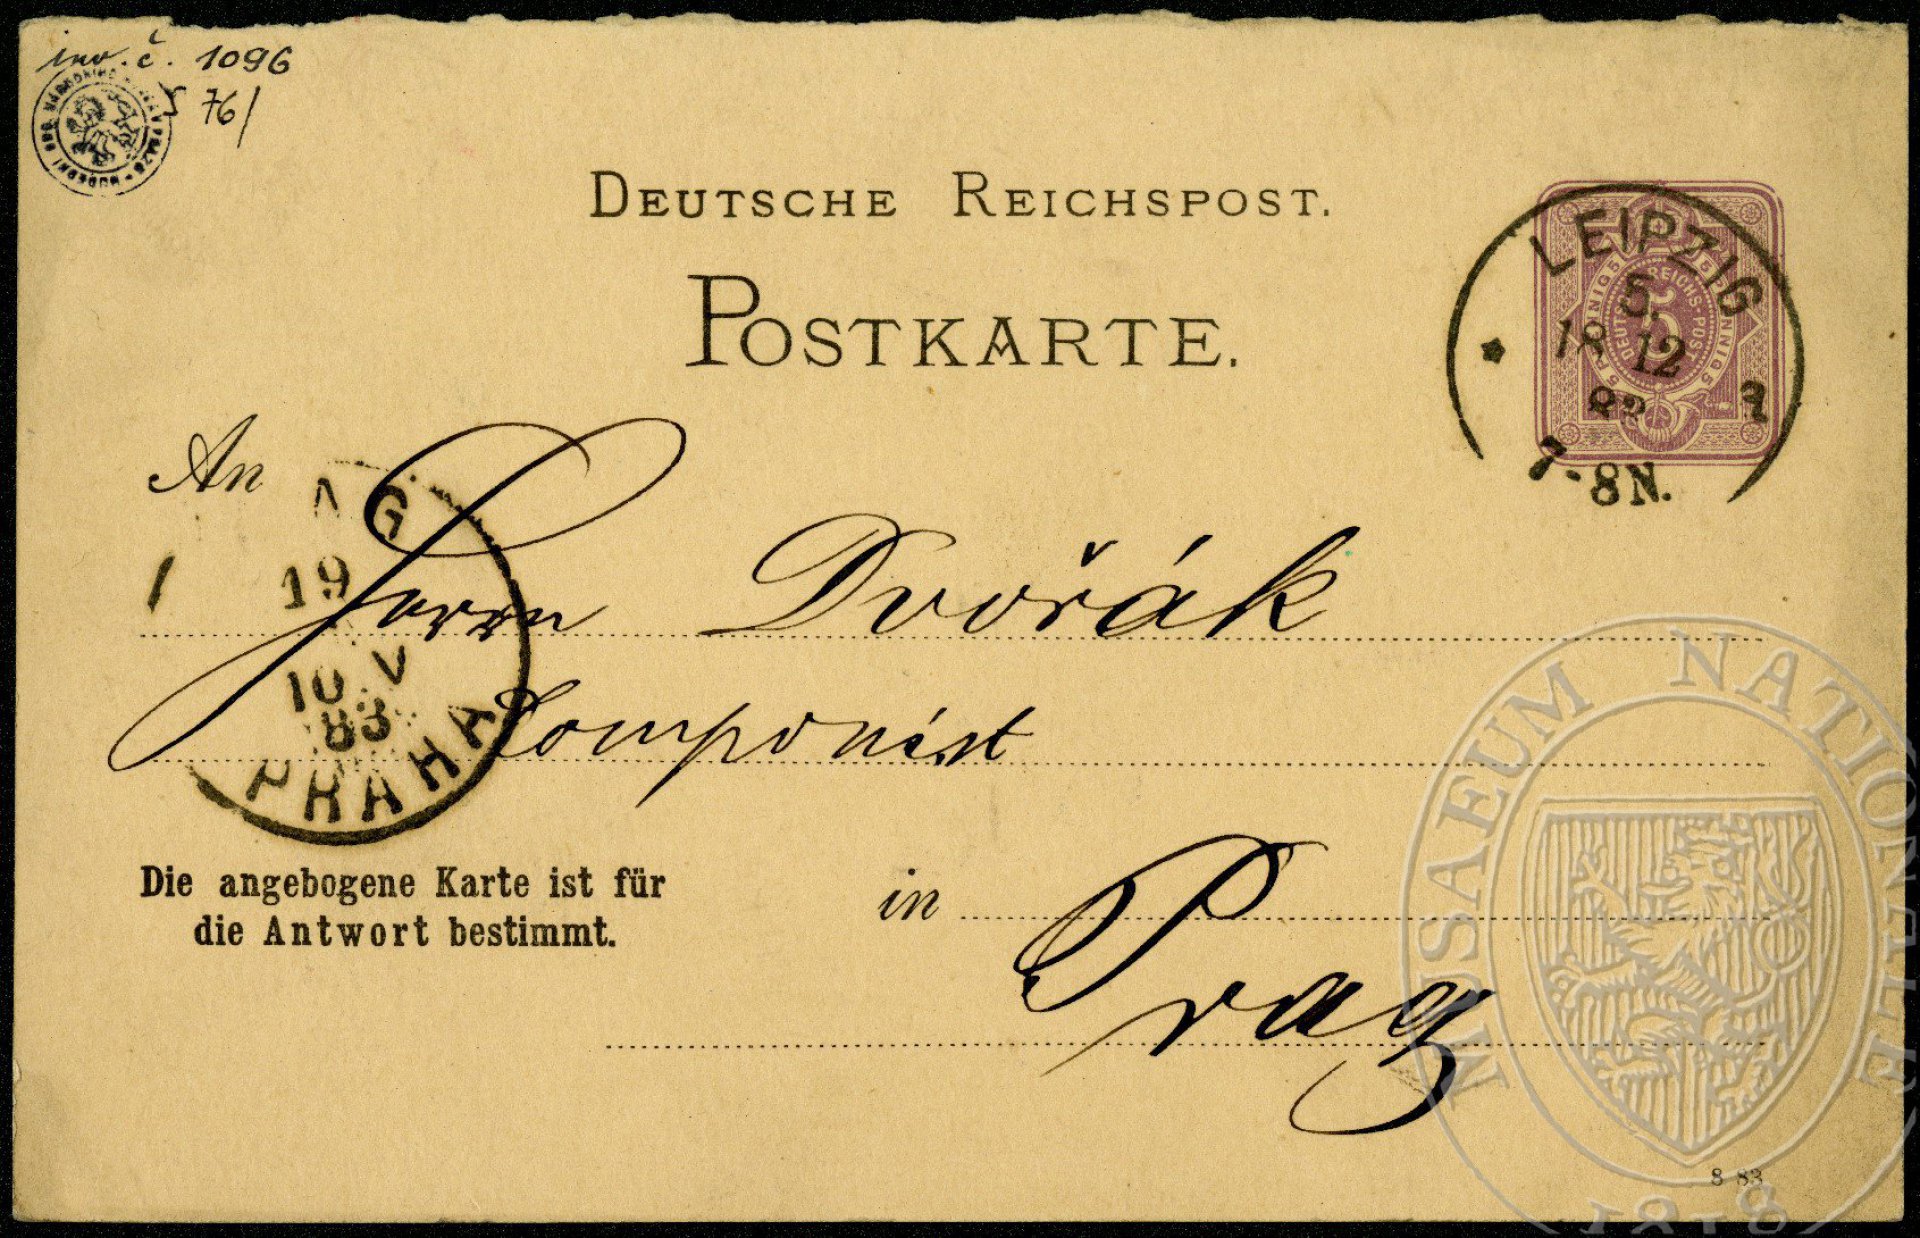 inv. č. 1096
S 76/
DEUTSCHE REICHSPOST.
POSTKARTE.
LEIPZIG
5.
18 12
83
7-8N.
DEUTSCHE REICHS-POST
5
An
AG
1
19
10 V
83
PRAHA
Herrn Dvořák
Componist
Die angebogene Karte ist für
die Antwort bestimmt.
in Prag
8 83
MUSAEUM NATIONALE
1818